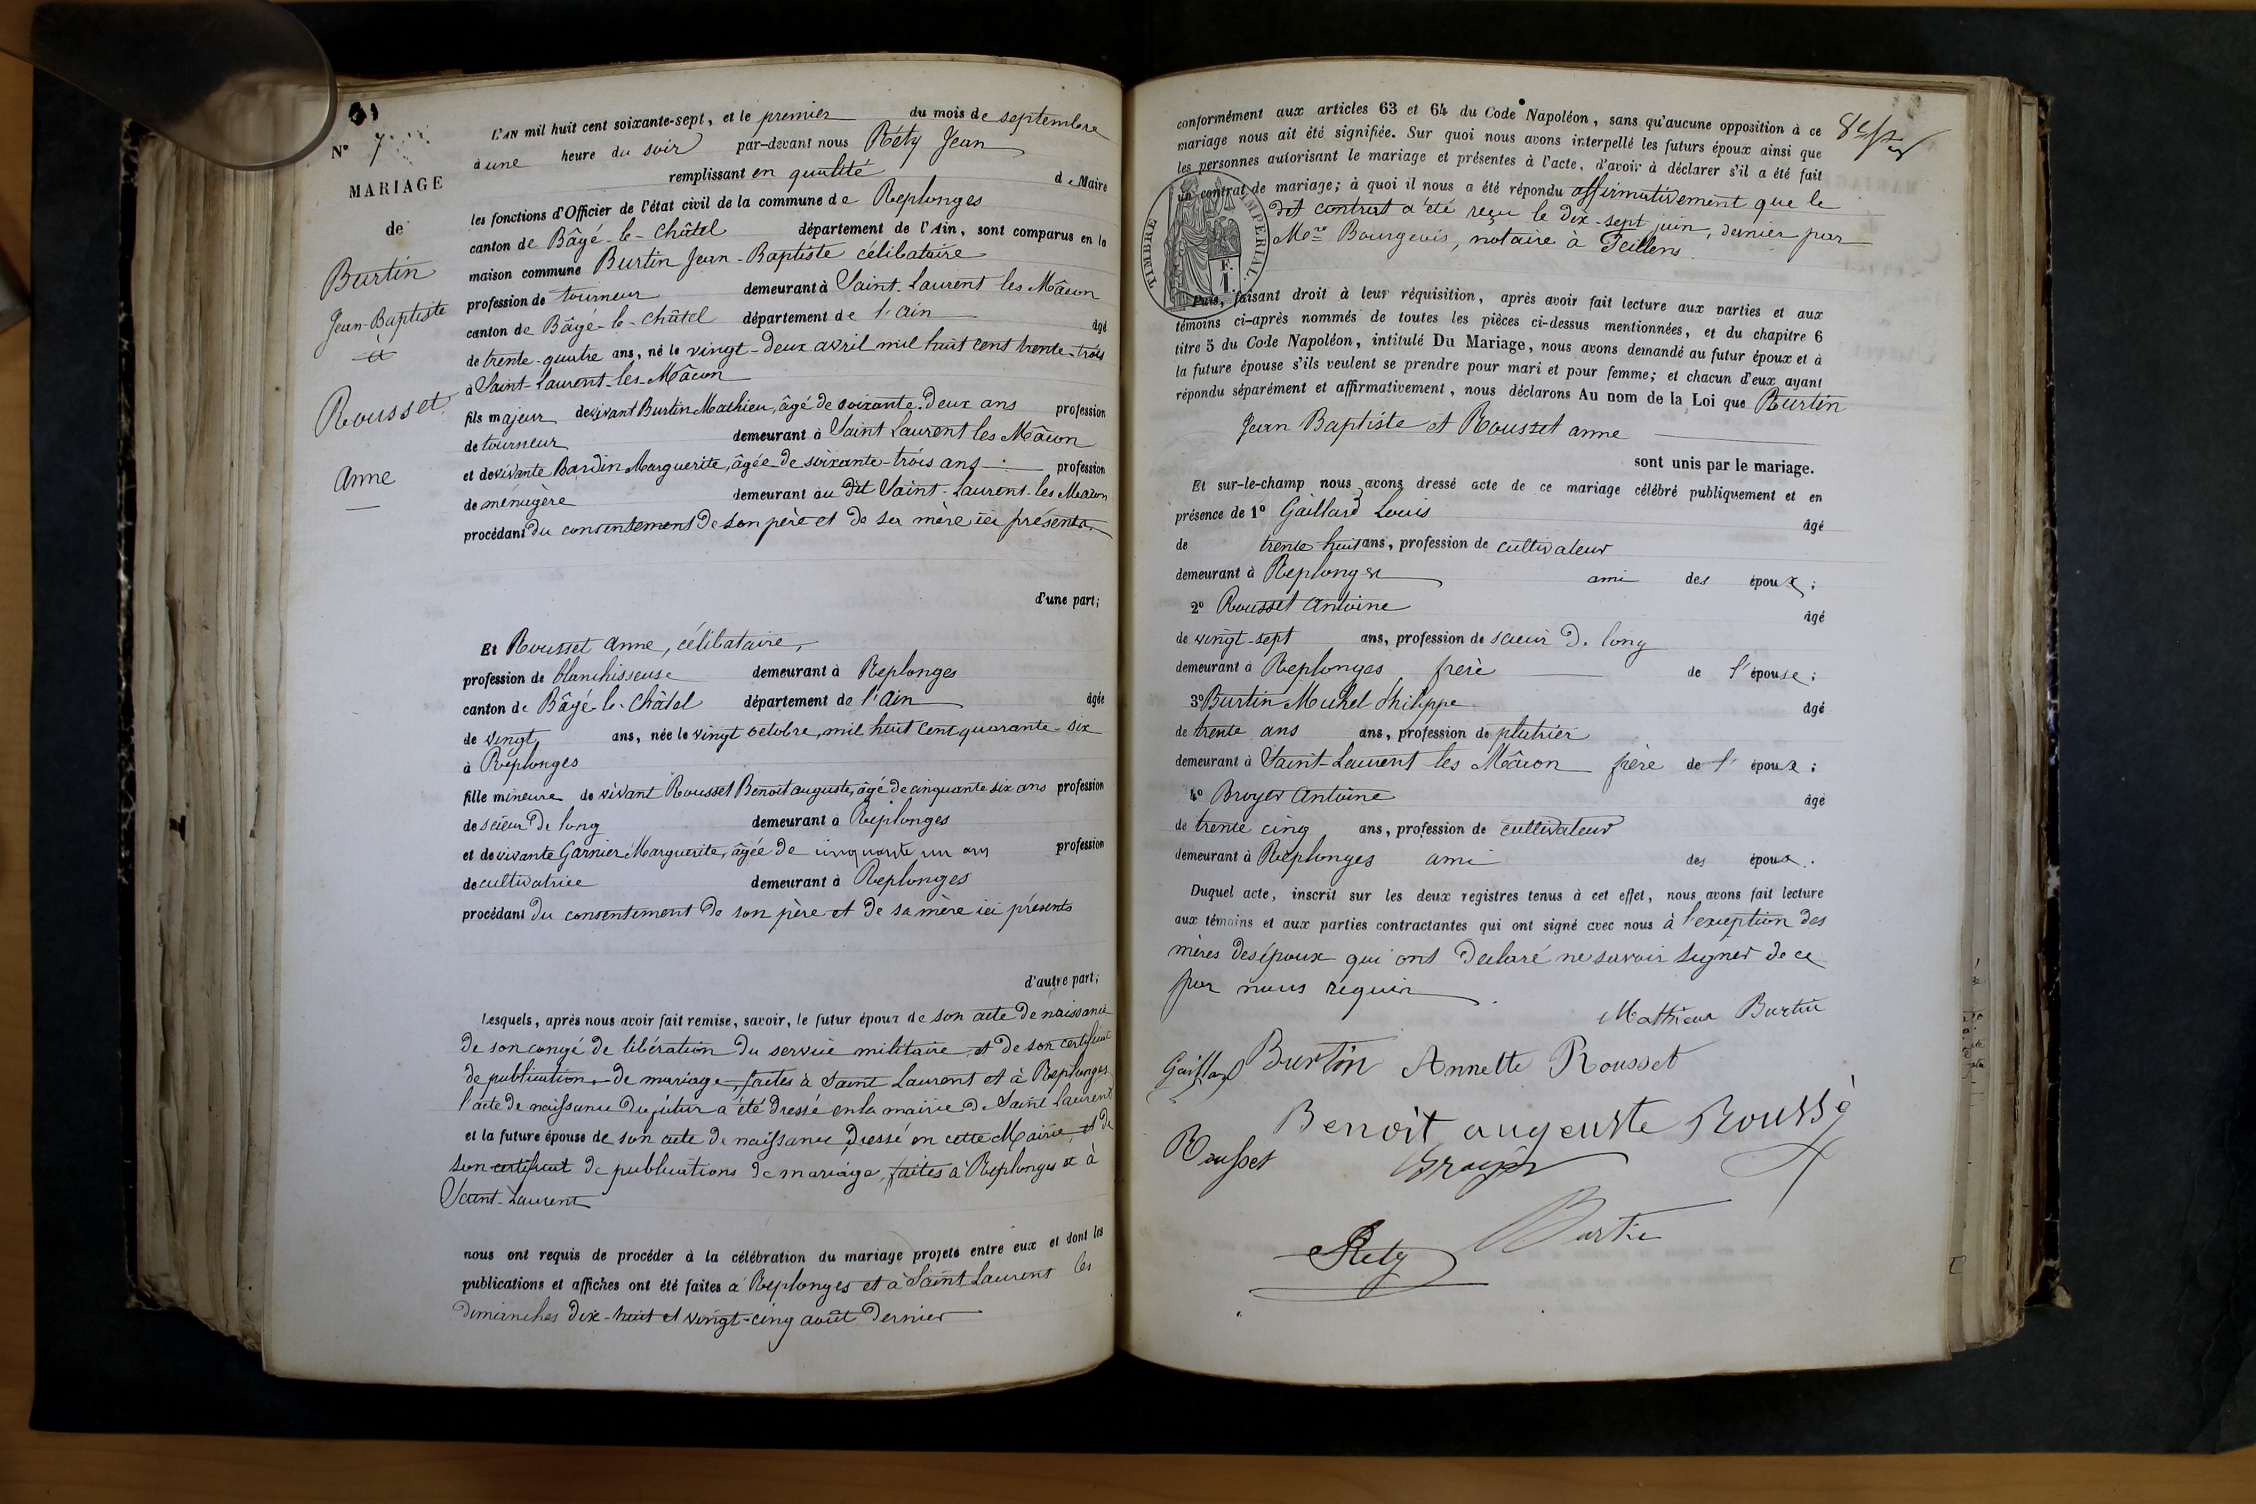 31
N° 7
MARIAGE
de
Burtin
Jean-Baptiste
et
Rousset
Anne
L'AN mil huit cent soixante-sept, et le premier du mois de septembre
à une heure du soir par-devant nous Réty Jean
remplissant en qualité de Maire
les fonctions d'Officier de l'état civil de la commune de Replonges
canton de Bâgé-le-Châtel département de l'Ain, sont comparus en la
maison commune Burtin Jean-Baptiste célibataire
profession de tourneur demeurant à Saint-Laurent les Mâcon
canton de Bâgé-le-Châtel département de l'Ain âgé
de trente-quatre ans, né le vingt-deux avril mil huit cent trente-trois
à Saint-Laurent-les-Mâcon
fils majeur de vivant Burtin Mathieu, âgé de soixante-deux ans profession
de tourneur demeurant à Saint Laurent les Mâcon
et de vivante Bardin Marguerite, âgée de soixante-trois ans profession
de ménagère demeurant au dit Saint-Laurent-les Mâcon
procédant du consentement de son père et de sa mère ici présents
d'une part;
Et Rousset Anne, célibataire,
profession de blanchisseuse demeurant à Replonges
canton de Bâgé-le-Châtel département de l'Ain âgée
de vingt ans, née le vingt octobre, mil huit cent quarante-six
à Replonges
fille mineure de vivant Rousset Benoît auguste, âgé de cinquante six ans profession
de scieur de long demeurant à Replonges
et de vivante Garnier Marguerite, âgée de cinquante un ans profession
de cultivatrice demeurant à Replonges
procédant du consentement de son père et de sa mère ici présents
d'autre part;
Lesquels, après nous avoir fait remise, savoir, le futur époux de son acte de naissance
de son congé de libération du service militaire et de son certificat
de publication de mariage, faites à Saint Laurent et à Replonges
l'acte de naissance du futur a été dressé en la mairie de Saint Laurent
et la future épouse de son acte de naissance dressé en cette Mairie, et de
son certificat de publications de mariage, faites à Replonges et à
Saint-Laurent
nous ont requis de procéder à la célébration du mariage projeté entre eux et dont les
publications et affiches ont été faites à Replonges et à Saint Laurent les
dimanches dix-huit et vingt-cinq août dernier
conformément aux articles 63 et 64 du Code Napoléon, sans qu'aucune opposition à ce
mariage nous ait été signifiée. Sur quoi nous avons interpellé les futurs époux ainsi que
les personnes autorisant le mariage et présentes à l'acte, d'avoir à déclarer s'il a été fait
un contrat de mariage; à quoi il nous a été répondu affirmativement que le
dit contrat a été reçu le dix-sept juin, dernier par
Me Bourgeois, notaire à Feillens
TIMBRE IMPERIAL
Puis, faisant droit à leur réquisition, après avoir fait lecture aux parties et aux
témoins ci-après nommés de toutes les pièces ci-dessus mentionnées, et du chapitre 6
titre 5 du Code Napoléon, intitulé Du Mariage, nous avons demandé au futur époux et à
la future épouse s'ils veulent se prendre pour mari et pour femme; et chacun d'eux ayant
répondu séparément et affirmativement, nous déclarons Au nom de la Loi que Burtin
Jean Baptiste et Rousset anne
sont unis par le mariage.
Et sur-le-champ nous avons dressé acte de ce mariage célébré publiquement et en
présence de 1° Gaillard Louis âgé
de trente huit ans, profession de cultivateur
demeurant à Replonges ami des époux;
2° Rousset Antoine âgé
de vingt-sept ans, profession de scieur de long
demeurant à Replonges frère de l'épouse;
3° Burtin Michel Philippe âgé
de trente ans ans, profession de plâtrier
demeurant à Saint-Laurent les Mâcon frère de l'époux;
4° Broyer Antoine âgé
de trente cinq ans, profession de cultivateur
demeurant à Replonges ami des époux.
Duquel acte, inscrit sur les deux registres tenus à cet effet, nous avons fait lecture
aux témoins et aux parties contractantes qui ont signé avec nous à l'exception des
mères des époux qui ont déclaré ne savoir signer de ce
par nous requis
Mathieu Burtin
Gaillard Burtin Annette Rousset
Benoit augeuste Rousse
Rousset Broyer
Réty Burtin